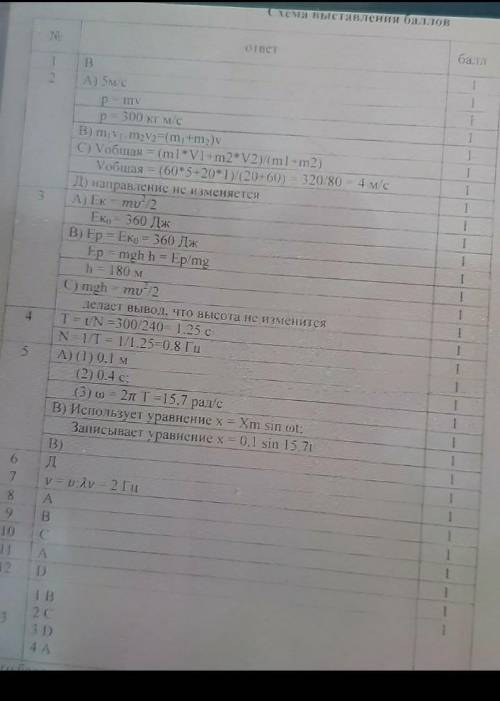 Схема выставления баллов
№ ответ балл
1 B 1
2 А) 5м/с 1
p = mv 1
p = 300 кг м/с 1
В) m₁v₁+m₂v₂=(m₁+m₂)v 1
С) Vобщая = (m1*V1+m2*V2)/(m1+m2) 1
Vобщая = (60*5+20*1)/(20+60) = 320/80 = 4 м/с 1
Д) направление не изменяется 1
3 А) Eк = mv²/2 1
Eк₀ = 360 Дж 1
В) Ep = Eк₀ = 360 Дж 1
Ep = mgh h = Ep/mg 1
h = 180 м 1
С) mgh = mv²/2 1
делает вывод, что высота не изменится 1
4 T = t/N =300/240= 1,25 с 1
N = 1/T = 1/1,25=0.8 Гц 1
5 А) (1) 0,1 м 1
(2) 0.4 с; 1
(3) ω = 2π T =15,7 рад/с 1
В) Использует уравнение x = Xm sin ωt; 1
Записывает уравнение x = 0,1 sin 15.7t 1
В) 1
6 Д 1
7 ν = υ:λ ν = 2 Гц 1
8 A 1
9 B 1
10 C 1
11 A 1
12 D 1
1 B 1
3 2 C 1
3 D 1
4 A